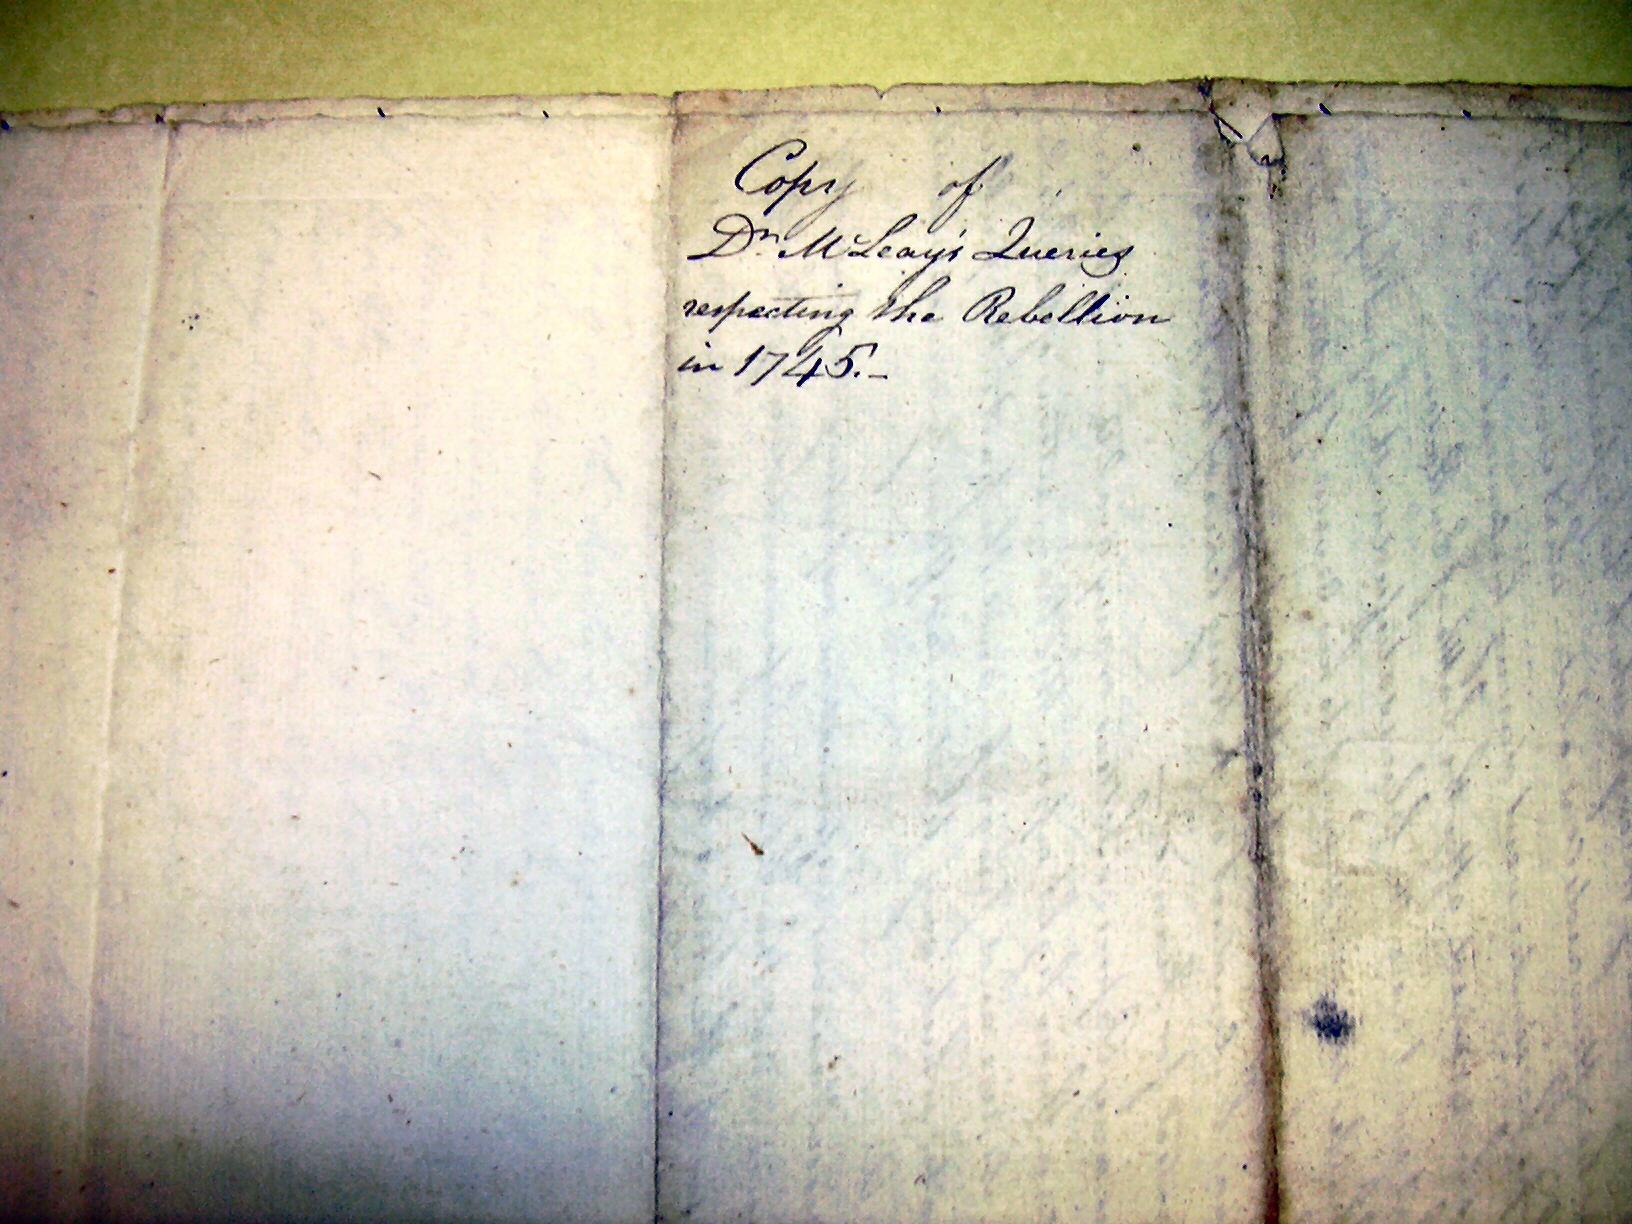 Copy of
Dr. McLeay's Queries
respecting the Rebellion
in 1745.-